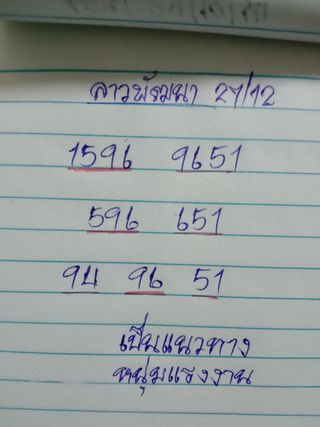 ลาวพัฒนา 27/12
1596 9651
596 651
94 96 51
เป็นแนวทาง
หนุ่มแรงงาน